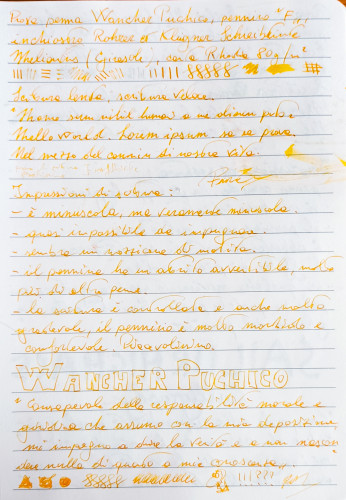 Prova penna Wancher Puchico, pennino "F",
inchiostro Rohrer & Klingner Schreibtinte
(Girasole), carta Rhodia 80 g/m²
Scrittura lenta, scrittura veloce.
"Homo sum nihil humani a me alienum puto"
Hello world. Lorem ipsum
Nel mezzo del cammin di nostra vita.
Impressioni di scrittura:
- è minuscola, ma veramente minuscola.
- quasi impossibile da impugnare.
- sembra un mozzicone di matita.
- il pennino ha un attrito avvertibile, molto
più di altre penne.
- la scrittura è controllata e anche molto
gradevole, il pennino è molto morbido e
confortevole. Piacevolissimo.
WANCHER PUCHICO
"Consapevole della responsabilità morale e
giuridica che assumo con la mia deposizione,
mi impegno a dire la verità e a non nascon-
dere nulla di quanto a mia conoscenza"
???